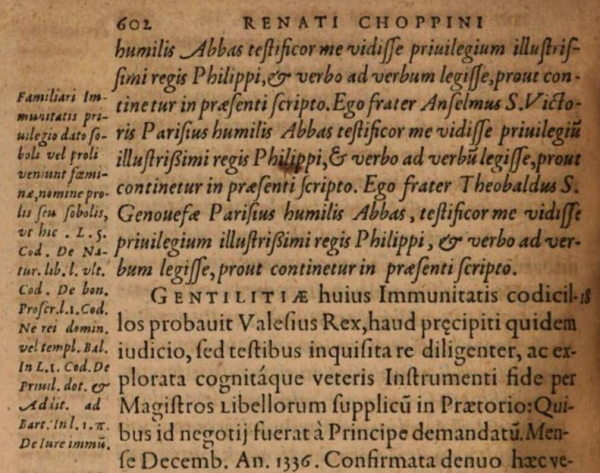 602 RENATI CHOPPINI
humilis Abbas testificor me vidisse priuilegium illustris-
simi regis Philippi, & verbo ad verbum legisse, prout con-
tinetur in præsenti scripto. Ego frater Anselmus S. Victo-
ris Parisius humilis Abbas testificor me vidisse priuilegiũ
illustrißimi regis Philippi, & verbo ad verbũ legisse, prout
continetur in præsenti scripto. Ego frater Theobaldus S.
Genouefæ Parisius humilis Abbas, testificor me vidisse
priuilegium illustrißimi regis Philippi, & verbo ad ver-
bum legisse, prout continetur in præsenti scripto.
GENTILITIÆ huius Immunitatis codicil- 18
los probauit Valesius Rex, haud pręcipiti quidem
iudicio, sed testibus inquisita re diligenter, ac ex-
plorata cognitáque veteris Instrumenti fide per
Magistros Libellorum supplicũ in Prætorio: Qui-
bus id negotij fuerat à Principe demandatũ. Men-
se Decemb. An. 1336. Confirmata denuo hæc ve-
Familiari Im-
munitatis pri-
uilegio dato so-
boli vel proli
veniunt fœmi-
næ, nomine pro-
lis seu sobolis,
vt hic . L. 5.
Cod. De Na-
tur. lib. l. vlt.
Cod. De bon.
Proscr. l. 1. Cod.
Ne rei domin.
vel templ. Bal.
In L. 1. Cod. De
Priuil. dot. &
Adiit. ad
Bart. In l. 1. π.
De Iure immũ.